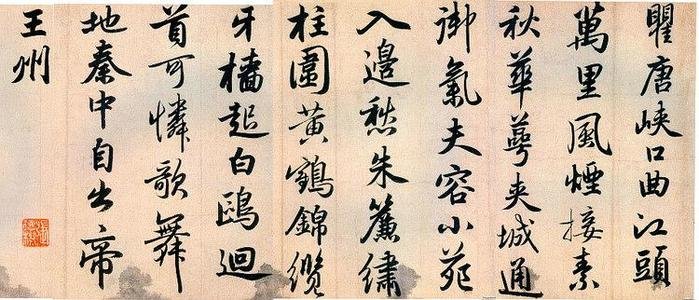 瞿唐峽口曲江頭
萬里風煙接素
秋華萼夾城通
御氣夫容小苑
入邊愁朱簾繡
柱圍黃鶴錦纜
牙檣起白鷗迴
首可憐歌舞
地秦中自古帝
王州